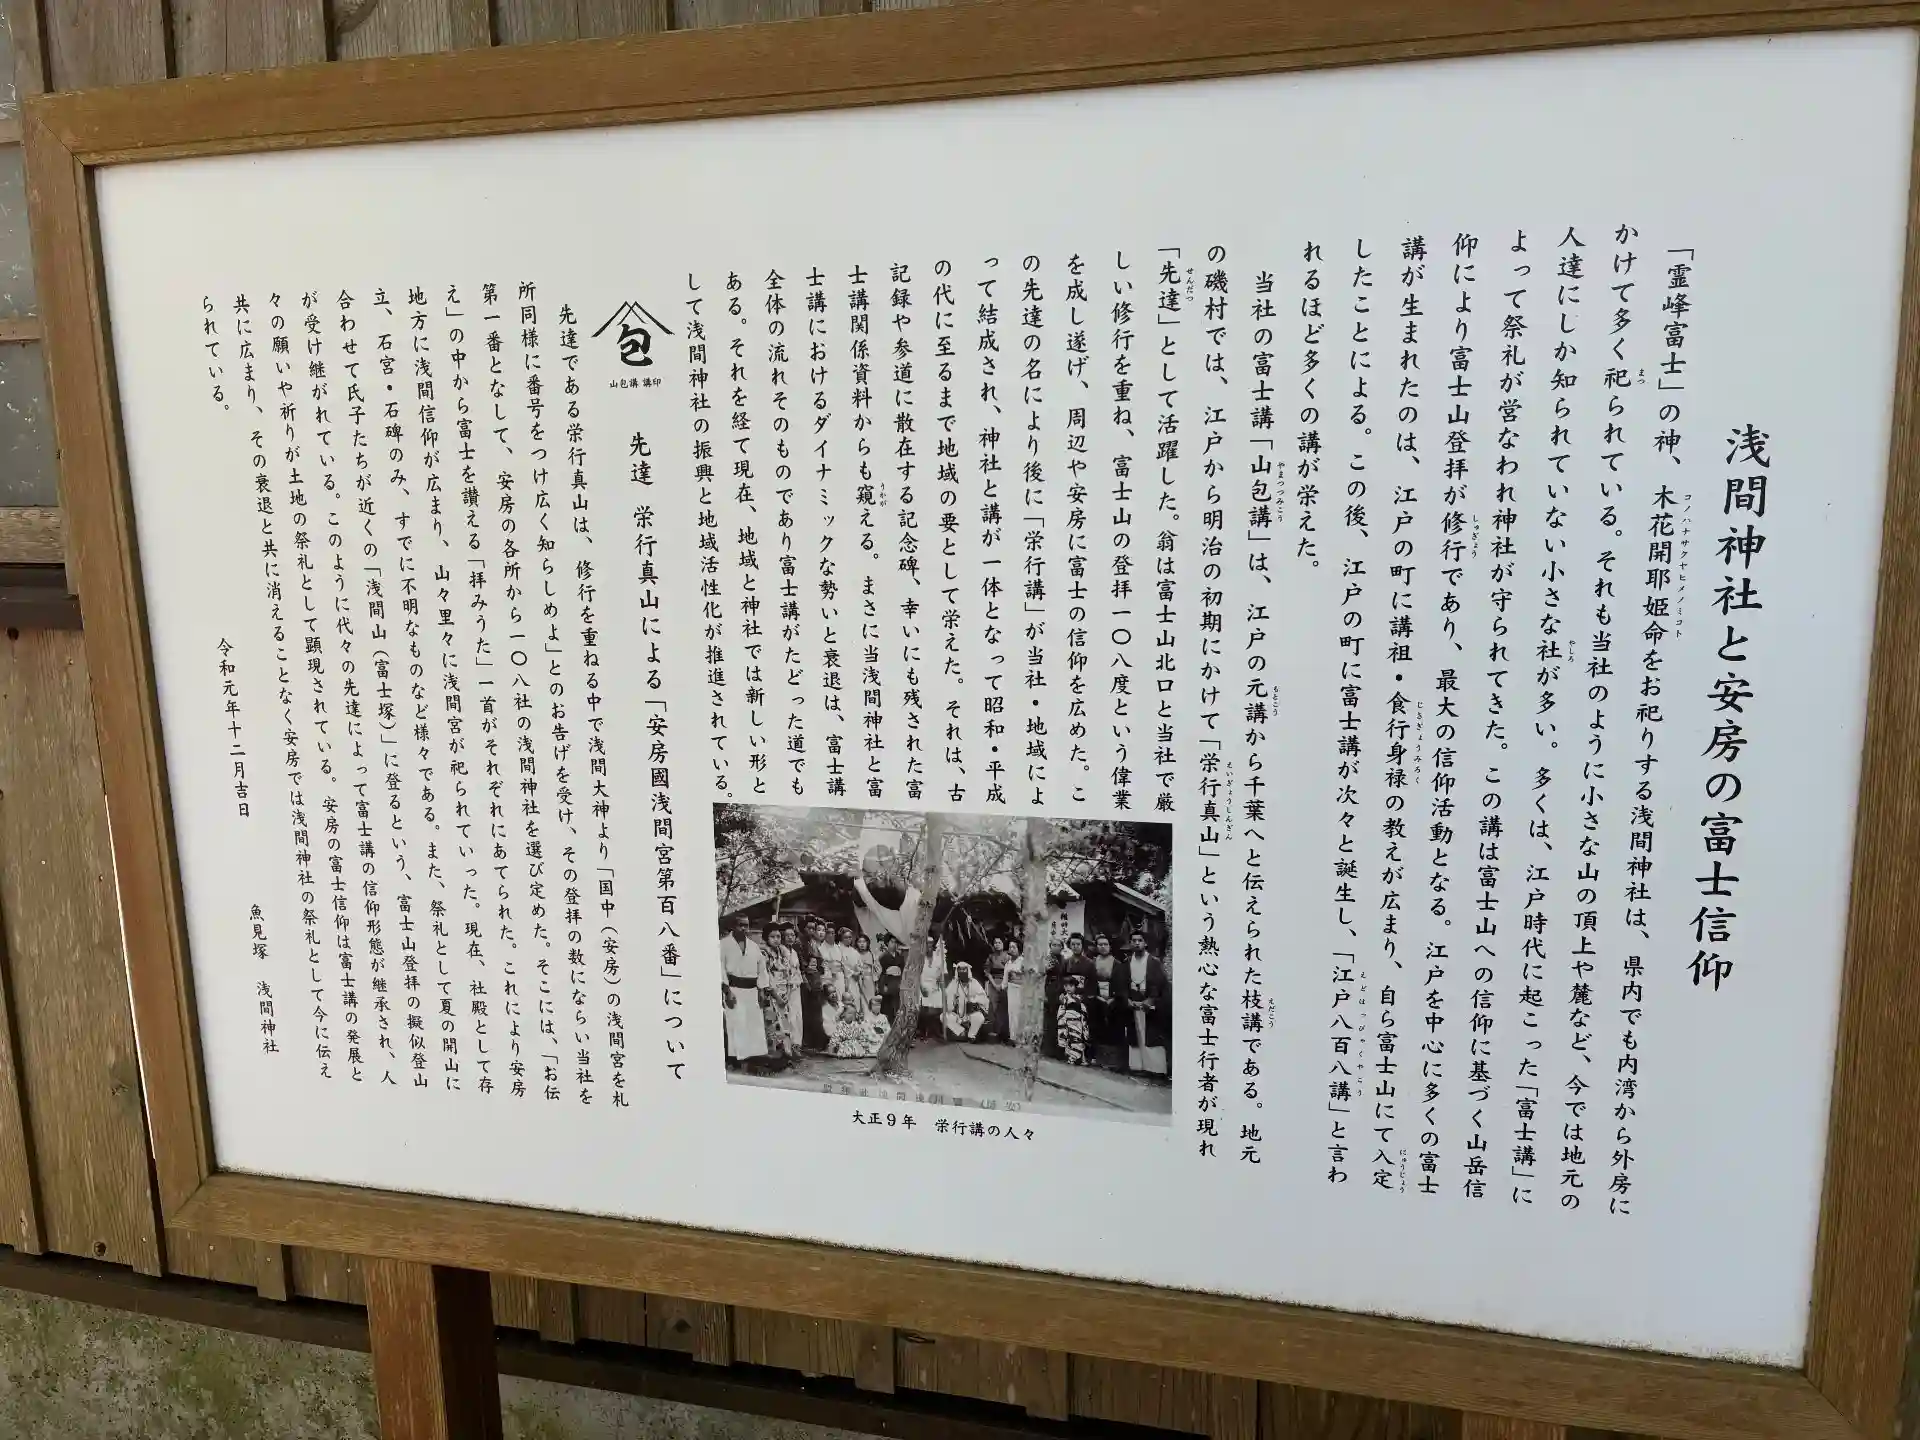 浅間神社と安房の富士信仰
「霊峰富士」の神、木花開耶姫命をお祀りする浅間神社は、県内でも内湾から外房に
コノハナサクヤヒメノミコト
かけて多く祀られている。それも当社のように小さな山の頂上や麓など、今では地元の
まつ
人達にしか知られていない小さな社が多い。多くは、江戸時代に起こった「富士講」に
やしろ
よって祭礼が営なわれ神社が守られてきた。この講は富士山への信仰に基づく山岳信
仰により富士山登拝が修行であり、最大の信仰活動となる。江戸を中心に多くの富士
しゅぎょう
講が生まれたのは、江戸の町に講祖・食行身禄の教えが広まり、自ら富士山にて入定
じきぎょうみろく
にゅうじょう
したことによる。この後、江戸の町に富士講が次々と誕生し、「江戸八百八講」と言わ
えどはっぴゃくやこう
れるほど多くの講が栄えた。
当社の富士講「山包講」は、江戸の元講から千葉へと伝えられた枝講である。地元
やまつつみこう
もとこう
えだこう
の磯村では、江戸から明治の初期にかけて「栄行真山」という熱心な富士行者が現れ
えいぎょうしんざん
「先達」として活躍した。翁は富士山北口と当社で厳
せんだつ
しい修行を重ね、富士山の登拝一〇八度という偉業
を成し遂げ、周辺や安房に富士の信仰を広めた。こ
の先達の名により後に「栄行講」が当社・地域によ
って結成され、神社と講が一体となって昭和・平成
の代に至るまで地域の要として栄えた。それは、古
記録や参道に散在する記念碑、幸いにも残された富
士講関係資料からも窺える。まさに当浅間神社と富
うかが
士講におけるダイナミックな勢いと衰退は、富士講
全体の流れそのものであり富士講がたどった道でも
ある。それを経て現在、地域と神社では新しい形と
して浅間神社の振興と地域活性化が推進されている。
大正9年 栄行講の人々
包
山包講 講印
先達 栄行真山による「安房國浅間宮第百八番」について
先達である栄行真山は、修行を重ねる中で浅間大神より「国中(安房)の浅間宮を札
所同様に番号をつけ広く知らしめよ」とのお告げを受け、その登拝の数にならい当社を
第一番となして、安房の各所から一〇八社の浅間神社を選び定めた。そこには、「お伝
え」の中から富士を讃える「拝みうた」一首がそれぞれにあてられた。これにより安房
地方に浅間信仰が広まり、山々里々に浅間宮が祀られていった。現在、社殿として存
立、石宮・石碑のみ、すでに不明なものなど様々である。また、祭礼として夏の開山に
合わせて氏子たちが近くの「浅間山(富士塚)」に登るという、富士山登拝の擬似登山
が受け継がれている。このように代々の先達によって富士講の信仰形態が継承され、人
々の願いや祈りが土地の祭礼として顕現されている。安房の富士信仰は富士講の発展と
共に広まり、その衰退と共に消えることなく安房では浅間神社の祭礼として今に伝え
られている。
令和元年十二月吉日
魚見塚 浅間神社